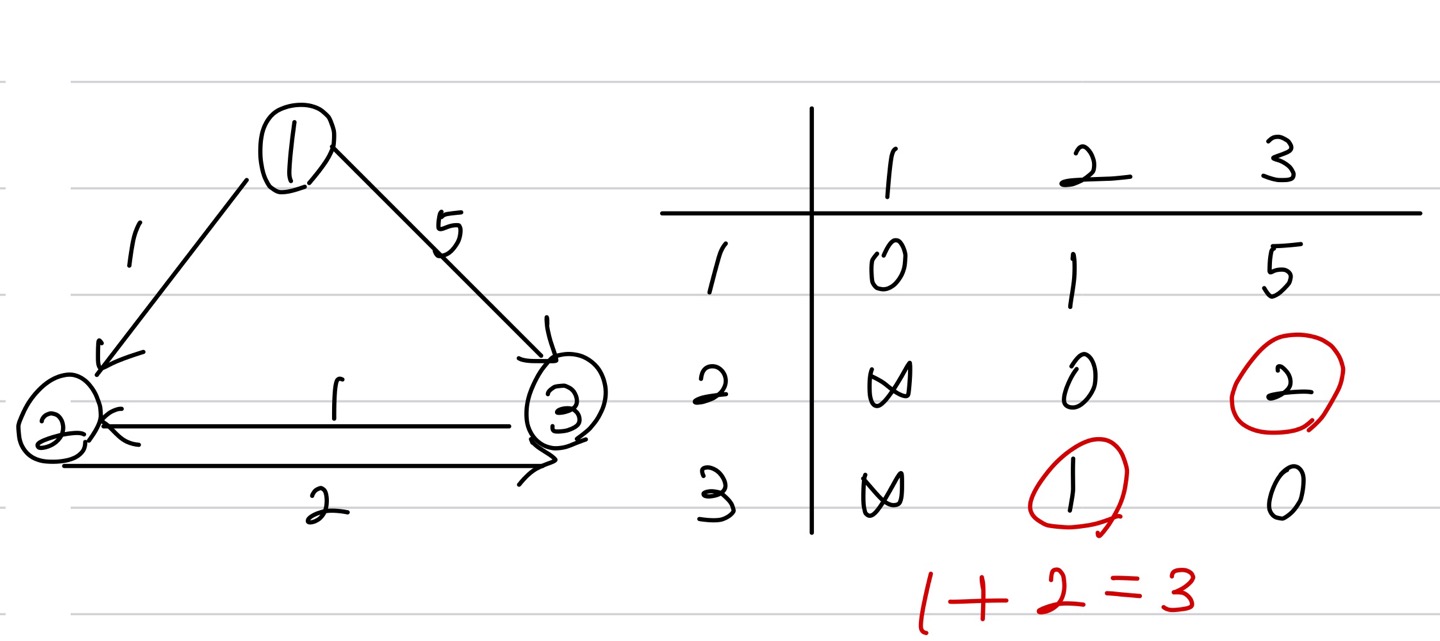 1
1
5
2
1
3
2
1 2 3
1 0 1 5
2 ∞ 0 2
3 ∞ 1 0
1 + 2 = 3